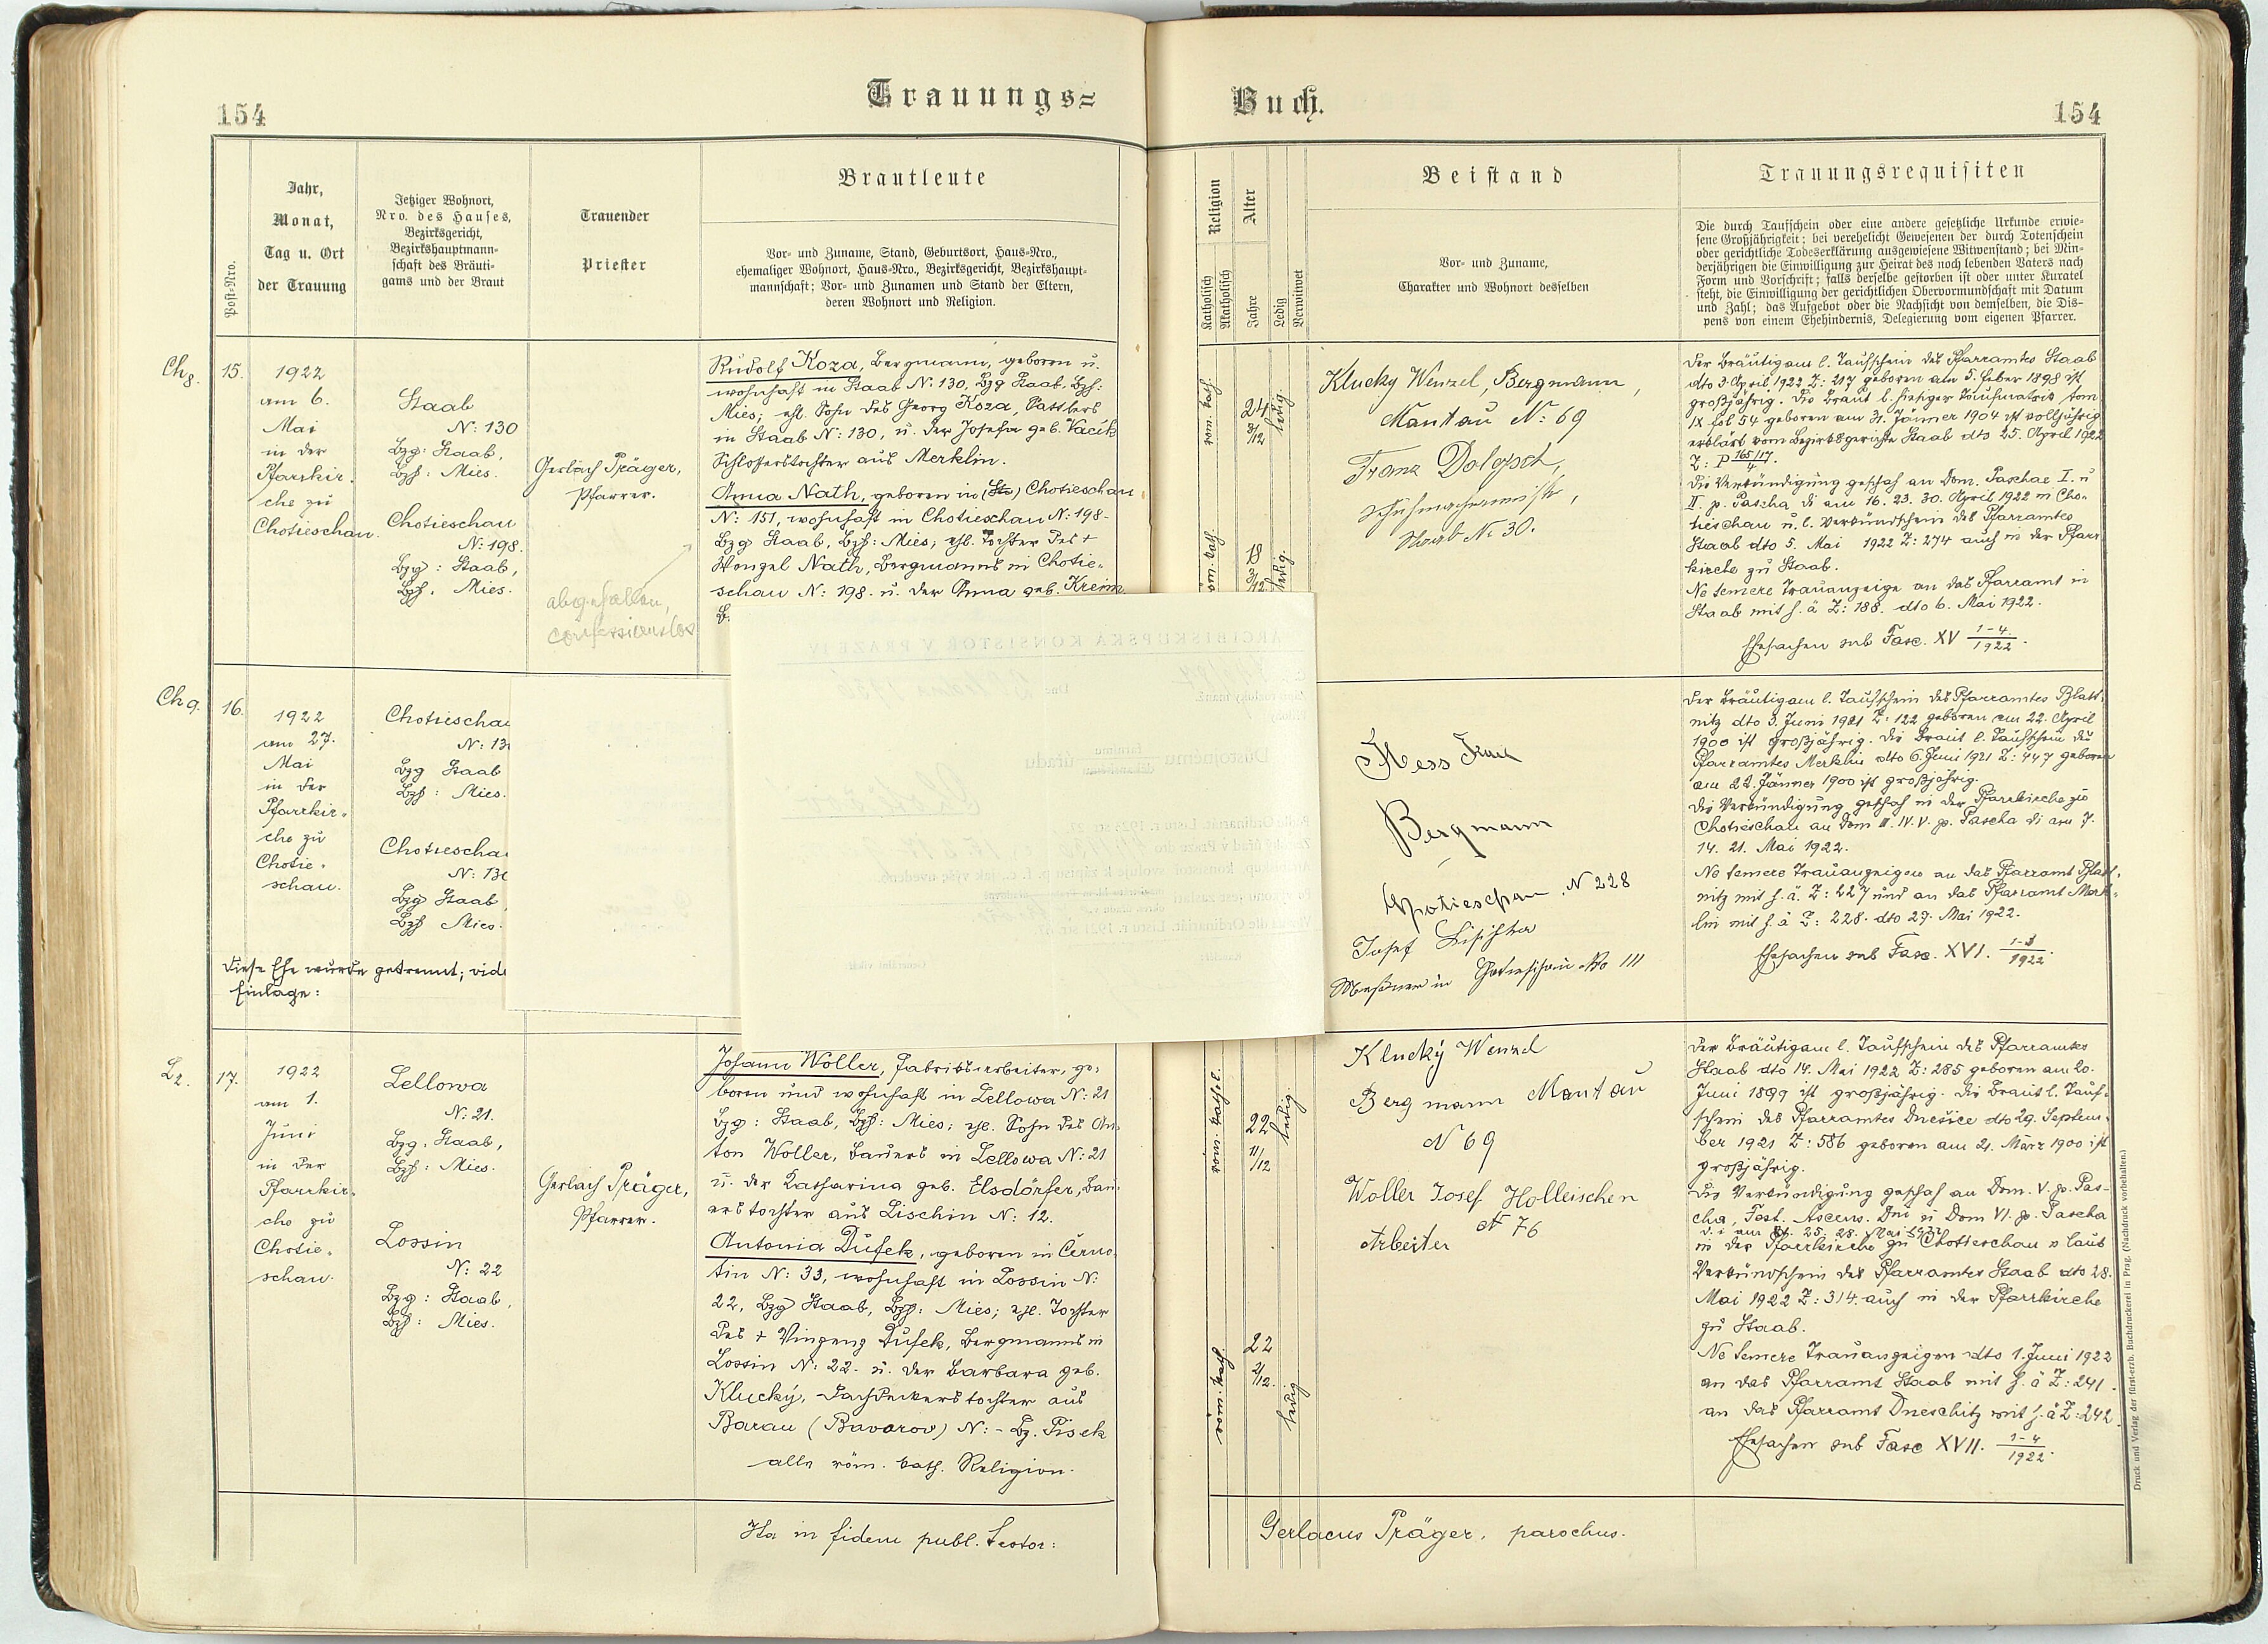 Trauungs=
Buch.
154
154
Post-Nro.
Jahr,
Monat,
Tag u. Ort
der Trauung
Jetziger Wohnort,
Nro. des Hauses,
Bezirksgericht,
Bezirkshauptmann-
schaft des Bräuti-
gams und der Braut
Trauender
Priester
Brautleute
Vor- und Zuname, Stand, Geburtsort, Haus-Nro.,
ehemaliger Wohnort, Haus-Nro., Bezirksgericht, Bezirkshaupt-
mannschaft; Vor- und Zunamen und Stand der Eltern,
deren Wohnort und Religion.
Religion
Katholisch
Akatholisch
Alter
Jahre
Ledig
Verwitwet
Beistand
Vor- und Zuname,
Charakter und Wohnort desselben
Trauungsrequisiten
Die durch Taufschein oder eine andere gesetzliche Urkunde erwie-
sene Großjährigkeit; bei verehelicht Gewesenen der durch Totenschein
oder gerichtliche Todeserklärung ausgewiesene Witwenstand; bei Min-
derjährigen die Einwilligung zur Heirat des noch lebenden Vaters nach
Form und Vorschrift; falls derselbe gestorben ist oder unter Kuratel
steht, die Einwilligung der gerichtlichen Obervormundschaft mit Datum
und Zahl; das Aufgebot oder die Nachsicht von demselben, die Dis-
pens von einem Ehehindernis, Delegierung vom eigenen Pfarrer.
Ch8.
15.
1922
am 6.
Mai
in der
Pfarrkir-
che zu
Chotieschau.
Staab
N: 130
Bzg: Staab,
Bzh: Mies.
Chotieschau
N: 198.
Bzg: Staab,
Bzh. Mies.
Gerlach Präger,
Pfarrer.
abgefallen,
confessionslos
Rudolf Koza, Bergmann, geboren u.
wohnhaft in Staab N: 130, Bzg Staab, Bzh:
Mies; ehl. Sohn des Georg Koza, Sattlers
in Staab N: 130, u. der Josefa geb. Vacík
Schlosserstochter aus Merklin.
Anna Nath, geboren in (St) Chotieschau
N: 151, wohnhaft in Chotieschau N: 198-
Bzg Staab, Bzh: Mies; ehl. Tochter des +
Wenzel Nath, Bergmanns in Chotie-
schau N: 198. u. der Anna geb. Kreim
röm. kath.
24
3/12
ledig.
röm. kath.
18
3/12
ledig.
Klucky Wenzel, Bergmann,
Mantau N: 69
Franz Dolopsch,
Schuhmachermeister,
Staab N: 30.
Der Bräutigam l. Taufschein des Pfarramtes Staab
dto 3. April 1922 Z: 217 geboren am 5. Feber 1898 ist
großjährig. Die Braut l. hiesiger Taufmatrik tom
IX fol 54 geboren am 31. Jänner 1904 ist volljährig
erklärt vom Bezirksgerichte Staab dto 25. April 1922
Z: P 165/17/4.
Die Verkündigung geschah an Dom. Paschae I. u
II. p. Pascha, di am 16. 23. 30. April 1922 in Cho-
tieschau u. l. Verkündschein des Pfarramtes
Staab dto 5. Mai 1922 Z: 274 auch in der Pfarr
kirche zu Staab.
Ne temere Trauanzeige an das Pfarramt in
Staab mit h. ä Z: 188. dto 6. Mai 1922.
Ehesachen sub Fasc. XV 1-4/1922.
Ch9.
16.
1922
am 27.
Mai
in der
Pfarrkir-
che zu
Chotie-
schau.
Chotieschau
N: 13
Bzg Staab
Bzh: Mies.
Chotieschau
N: 13
Bzg Staab,
Bzh Mies.
Diese Ehe wurde getrennt; vide
Einlage:
ARCIBISKUPSKÁ KONSISTOŘ V PRAZE IV
Dne
Důstojnému
farnímu
děkanskému
úřadu
Generální vikář
Hess Karl
Bergmann
Chotieschau N 228
Josef
Messner in Chotieschau No 111
Der Bräutigam l. Taufschein des Pfarramtes Blatt-
nitz dto 3. Juni 1921 Z: 122 geboren am 22. April
1900 ist großjährig. Die Braut l. Taufschein des
Pfarramtes Merklin dto 6. Juni 1921 Z: 447 geboren
am 22. Jänner 1900 ist großjährig.
Die Verkündigung geschah in der Pfarrkirche zu
Chotieschau an Dom III. IV. V. p. Pascha di am 7.
14. 21. Mai 1922.
Ne temere Trauanzeigen an das Pfarramt Blatt-
nitz mit h. ä. Z: 227 und an das Pfarramt Merk-
lin mit h. ä Z: 228. dto 27. Mai 1922.
Ehesachen sub Fasc. XVI. 1-3/1922.
L2.
17.
1922
am 1.
Juni
in der
Pfarrkir-
che zu
Chotie-
schau.
Lellowa
N: 21.
Bzg. Staab,
Bzh: Mies.
Lossin
N: 22
Bzg: Staab,
Bzh: Mies.
Gerlach Präger,
Pfarrer.
Johann Woller, Fabriksarbeiter, ge-
boren und wohnhaft in Lellowa N: 21
Bzg: Staab, Bzh: Mies; ehl. Sohn des An-
ton Woller, Bauers in Lellowa N: 21
u. der Katharina geb. Elsdörfer, Bau-
erstochter aus Lischin N: 12.
Antonia Dufek, geboren in Černo-
tin N: 33, wohnhaft in Lossin N:
22, Bzg Staab, Bzh: Mies; ehl. Tochter
des + Vinzenz Dufek, Bergmanns in
Lossin N: 22. u. der Barbara geb.
Klucký, Dachdeckerstochter aus
Barau (Bavorov) N: - Bz. Pisek
alle röm. kath. Religion.
röm. kathol.
22
11/12
ledig
röm. kath.
22
2/12.
ledig
Klucký Wenzel
Bergmann Mantau
N 69
Woller Josef Holleischen
N 76
Arbeiter
Der Bräutigam l. Taufschein des Pfarramtes
Staab dto 14. Mai 1922 Z: 285 geboren am 20.
Juni 1899 ist großjährig. Die Braut l. Tauf-
schein des Pfarramtes Dnešice dto 29. Septem-
ber 1921 Z: 586 geboren am 21. März 1900 ist
großjährig.
Die Verkündigung geschah an Dom. V. p. Pas-
cha, Fest. Ascens. Dni u Dom VI. p. Pascha
d. i am 21. 25. 28. Mai 1922
in der Pfarrkirche zu Chotieschau u laut
Verkündschein des Pfarramtes Staab dto 28.
Mai 1922 Z: 314. auch in der Pfarrkirche
zu Staab.
Ne temere Trauanzeigen dto 1. Juni 1922
an das Pfarramt Staab mit h. ä Z: 241.
an das Pfarramt Dneschitz mit h. ä Z: 242.
Ehesachen sub Fasc XVII. 1-4/1922.
Ita in fidem publ. testor:
Gerlacus Präger, parochus.
Druck und Verlag der fürst-erzb. Buchdruckerei in Prag. (Nachdruck vorbehalten.)